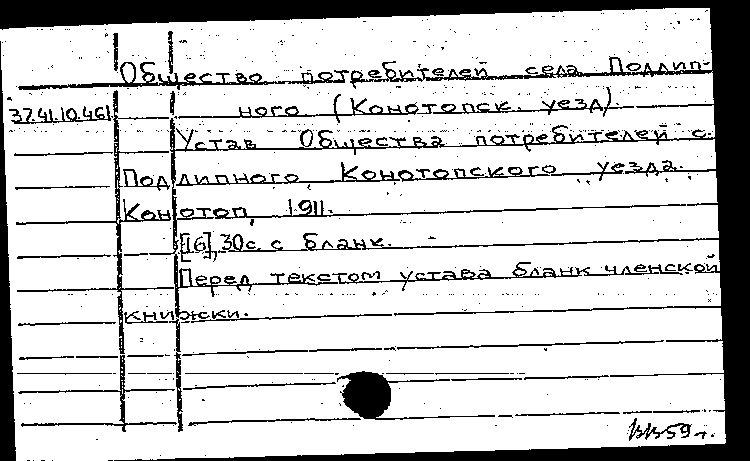 Общество потребителей села Подлип-
37.41.10.461 ного (Конотопск. уезд).
Устав Общества потребителей с.
Подлипного, Конотопского уезда.
Конотоп, 1911.
[16],30с. с бланк.
Перед текстом устава бланк членской
книжки.